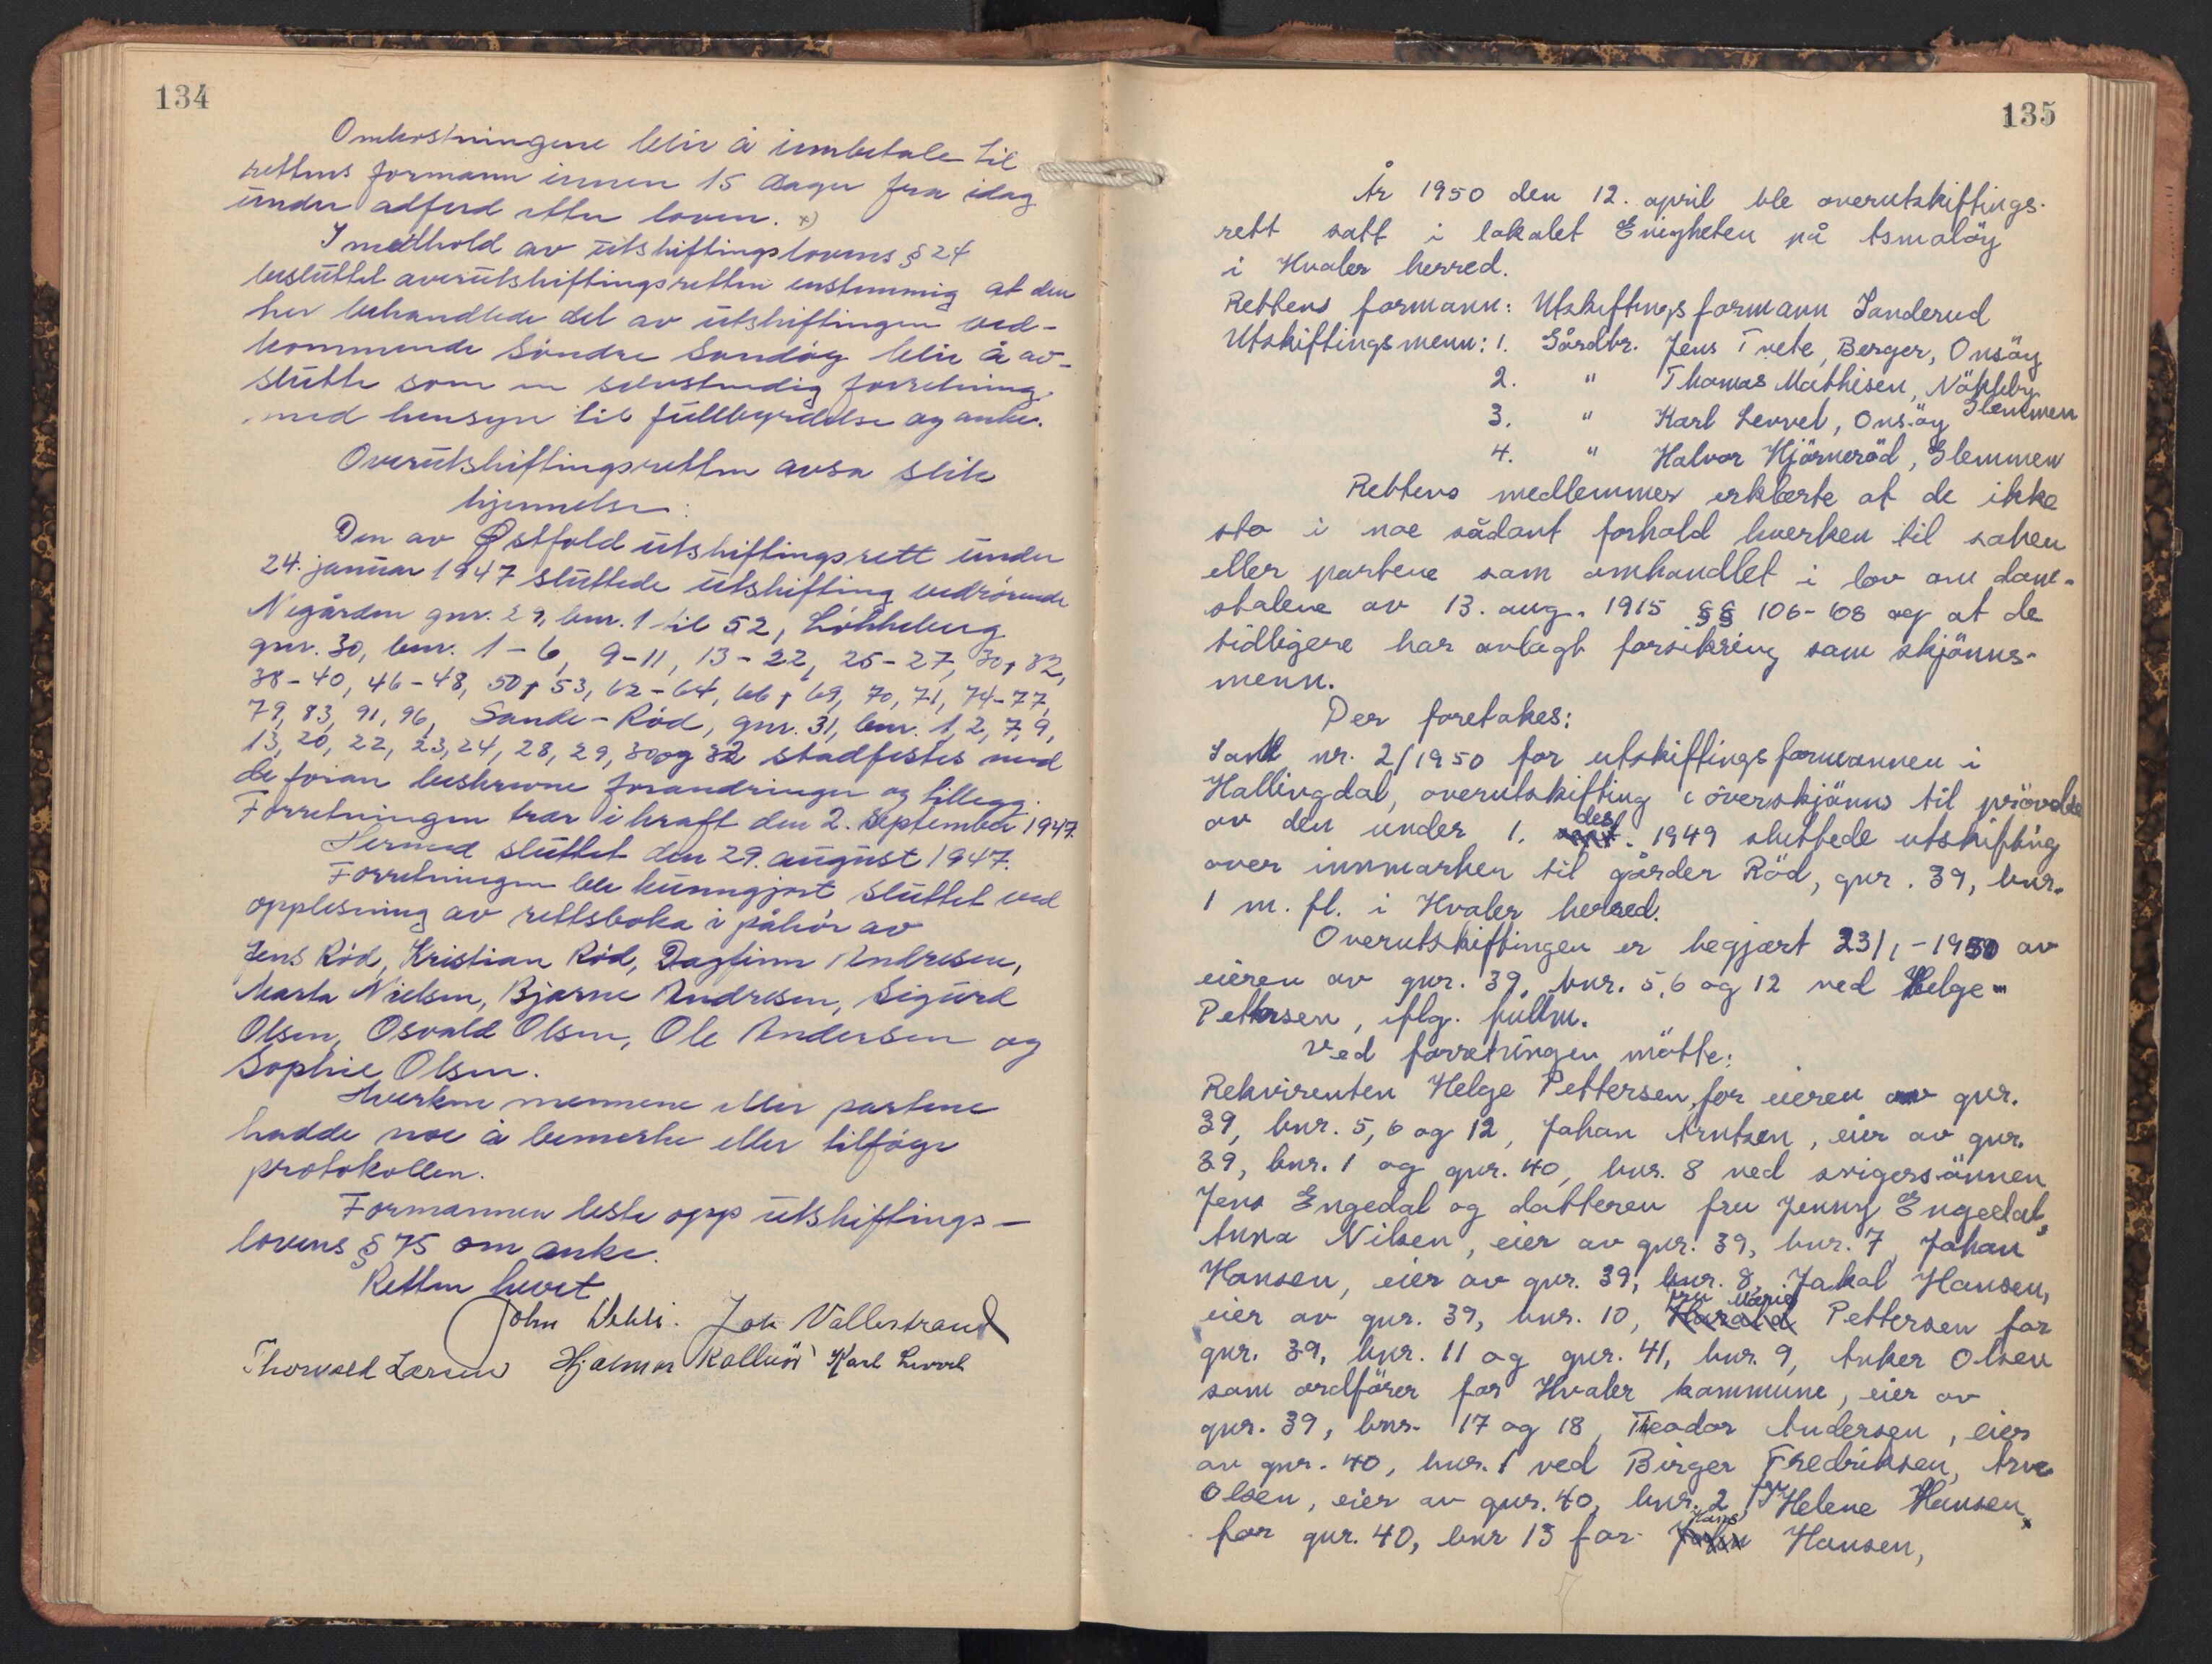 134
Omkostningene blir å innbetale til
rettens formann innen 15 dager fra idag
under adferd etter loven. x)
I medhold av utskiftingslovens § 24
besluttet overutskiftingsretten enstemmig at den
her behandlede del av utskiftingen ved-
kommende Söndre Sandöy blir å av-
slutte som en selvstendig forretning
med hensyn til fullbyrdelse og anke.
Overutskiftingsretten avsa slik
kjennelse:
Den av Østfold utskiftingsrett under
24. januar 1947 sluttede utskifting vedrörende
Nigården gnr. 29, bnr. 1 til 52, Lökkeberg
gnr. 30, bnr. 1-6, 9-11, 13-22, 25-27, 30, 32,
38-40, 46-48, 50, 53, 62-64, 66, 69, 70, 71, 74-77,
79, 83, 91, 96, Sande-Röd, gnr. 31, bnr. 1, 2, 7, 9,
13, 20, 22, 23, 24, 28, 29, 30 og 32 stadfestes med
de foran beskrevne forandringer og tillegg.
Forretningen trær i kraft den 2. september 1947.
Hermed sluttet den 29. august 1947.
Forretningen ble kunngjort sluttet ved
opplesning av rettsboka i påhör av
Jens Röd, Kristian Röd, Dagfinn Andresen,
Marta Nielsen, Bjarne Andresen, Sigurd
Olsen, Osvald Olsen, Ole Andersen og
Sophie Olsen.
Hverken mennene eller partene
hadde noe å bemerke eller tilföye
protokollen.
Formannen leste opp utskiftings-
lovens § 75 om anke.
Retten hevet
John Dehli. Joh Vallestrand
Thorvald Larsen Hjalmar Kallnör Karl Levvel
135
År 1950 den 12. april ble overutskiftings-
rett satt i lokalet Enigheten på Asmalöy
i Hvaler herred.
Rettens formann: Utskiftingsformann Sanderud
Utskiftingsmenn: 1. Gårdbr. Jens Tvete, Berger, Onsöy
2. " Thomas Mathisen, Nökleby
Glemmen
3. " Karl Levvel, Onsöy
4. " Halvor Hjörneröd, Glemmen
Rettens medlemmer erklærte at de ikke
sto i noe sådant forhold hverken til saken
eller partene som omhandlet i lov om dom-
stolene av 13. aug. 1915 §§ 106-108 og at de
tidligere har avlagt forsikring som skjönns-
menn.
Der foretakes:
Sak nr. 2/1950 for utskiftingsformannen i
Hallingdal, overutskifting (överskjönn) til prövelse
av den under 1. des. 1949 sluttede utskifting
over innmarken til gårder Röd, gnr. 39, bnr.
1 m. fl. i Hvaler herred.
Overutskiftingen er begjært 23/1-1950 av
eieren av gnr. 39, bnr. 5, 6 og 12 ved Helge
Pettersen, iflg. fullm.
Ved forretningen mötte:
Rekvirenten Helge Pettersen, for eieren av gnr.
39, bnr. 5, 6 og 12, Johan Arntsen, eier av gnr.
39, bnr. 1 og gnr. 40, bnr. 8 ved svigersönnen
Jens Engedal og datteren fru Jenny Engedal,
Anna Nilsen, eier av gnr. 39, bnr. 7, Johan
Hansen, eier av gnr. 39, bnr. 8, Jakob Hansen,
fru Marie
eier av gnr. 39, bnr. 10, Harald Pettersen for
gnr. 39, bnr. 11 og gnr. 41, bnr. 9, Anker Olsen
som ordförer for Hvaler kommune, eier av
gnr. 39, bnr. 17 og 18, Theodor Andersen, eier
av gnr. 40, bnr. 1 ved Birger Fredriksen, Arve
Olsen, eier av gnr. 40, bnr. 2, fru Helene Hansen,
Hans
for gnr. 40, bnr 13 for John Hansen,